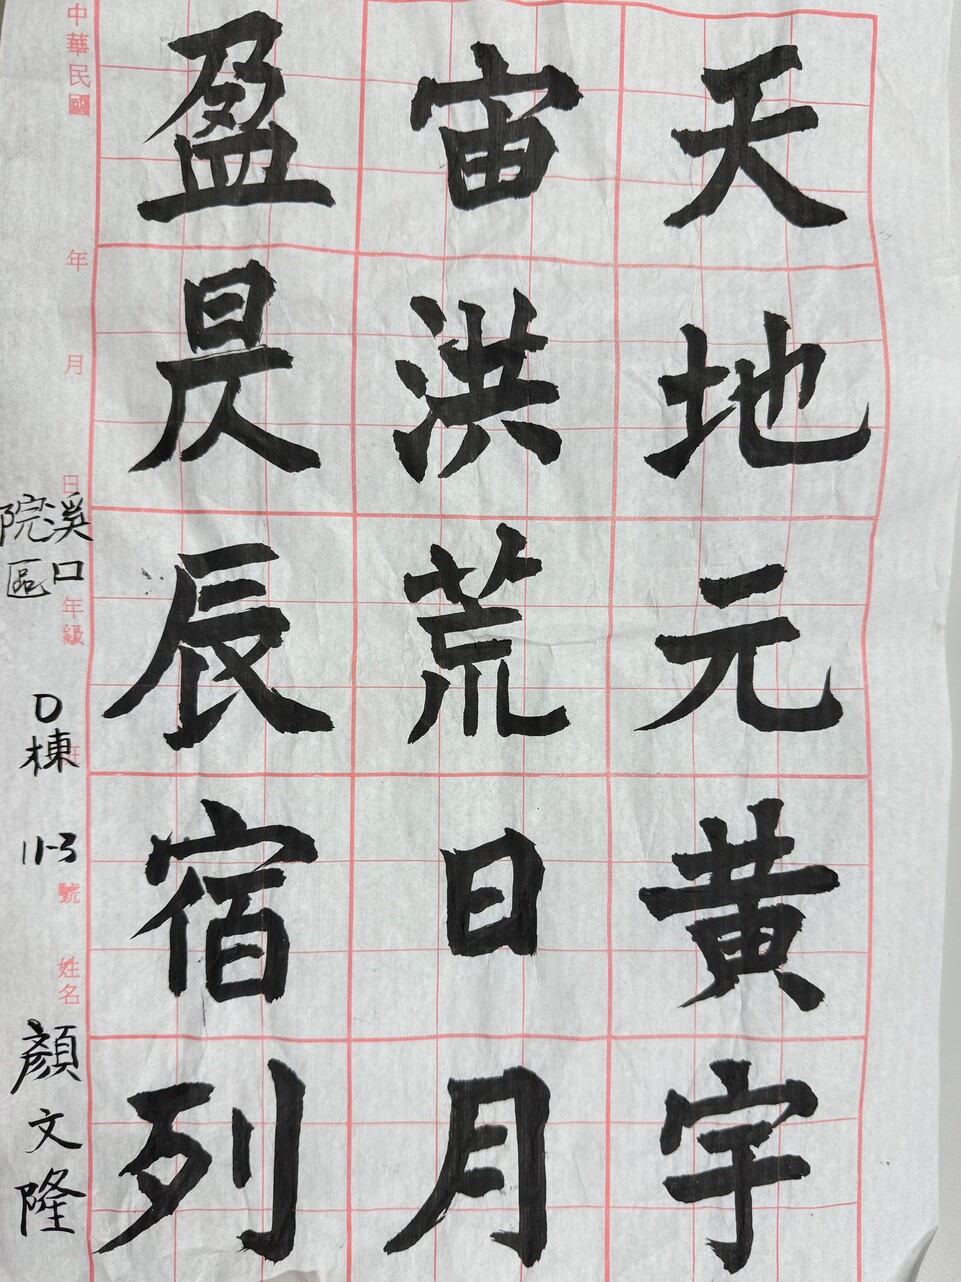 天地元黃宇
宙洪荒日月
盈昃辰宿列
中華民國 年 月 日
溪口
院區
年級
D棟
11-3
號
姓名
顏文隆